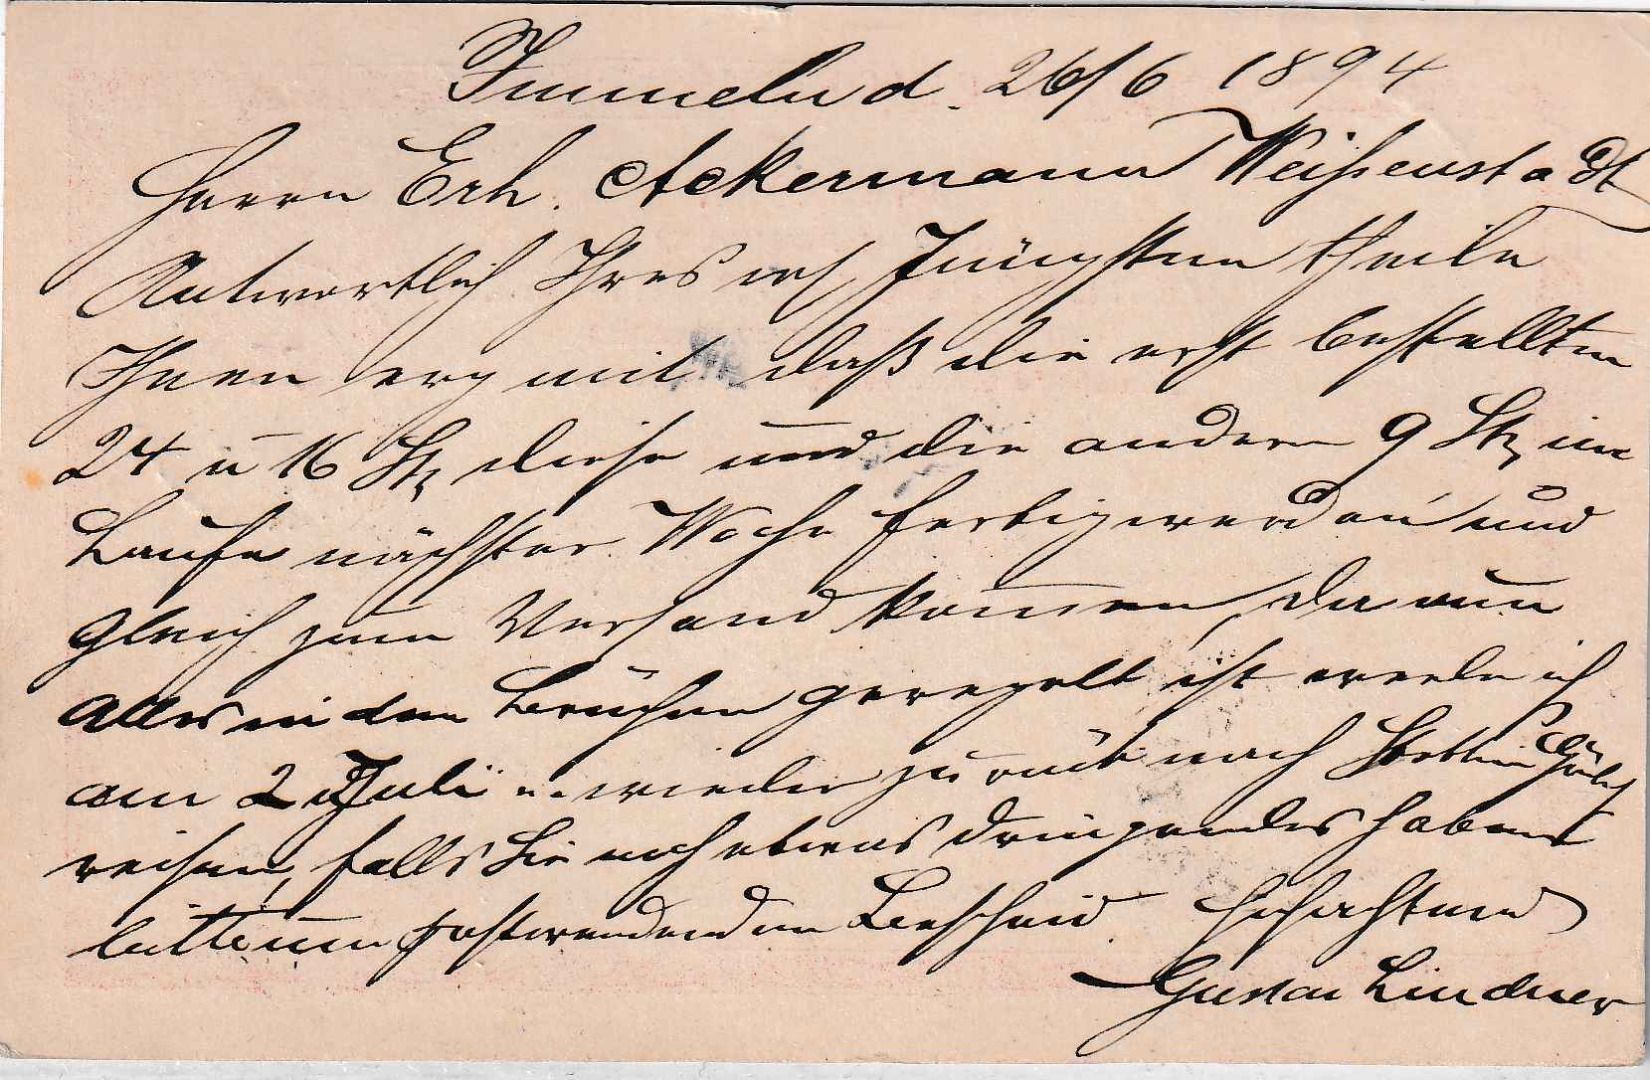 Immeln d. 26/6 1894
Herrn Erh. Ackermann Weißenstadt
Antwortlich Ihres Jüngsten theile
Ihnen erg mit daß die erst bestellten
24 u 16 Stz diese und die andern 9 Stz im
Laufe nächster Woche fertig werden und
gleich zum Versand kommen, da nun
Alles in den Brüchen geregelt ist werde ich
am 2 Juli wieder zurück nach Stettin
reisen, falls Sie noch etwas dringendes haben
bitte um postwendenden Bescheid. Hochachtend
Gustav Lindner